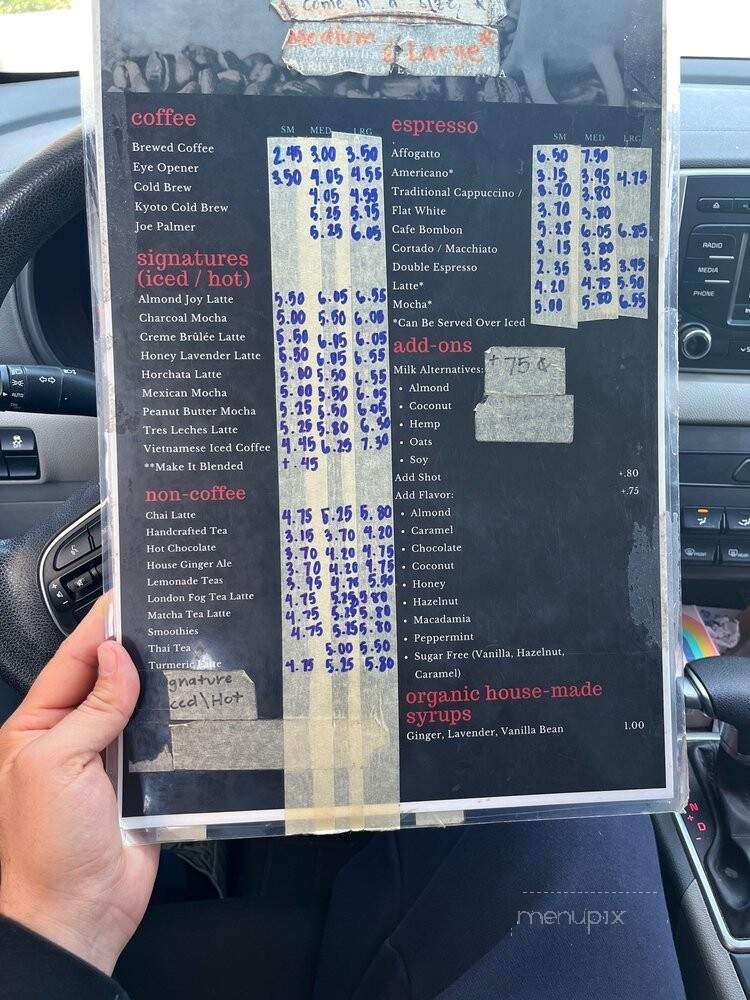 come in a size
Medium & Large*
coffee
SM MED LRG
Brewed Coffee 2.45 3.00 3.50
Eye Opener 3.50 4.05 4.55
Cold Brew 4.05 4.55
Kyoto Cold Brew 5.25 5.95
Joe Palmer 5.25 6.05
signatures
(iced / hot)
Almond Joy Latte 5.50 6.05 6.55
Charcoal Mocha 5.00 5.50 6.05
Creme Brûlée Latte 5.50 6.05 6.05
Honey Lavender Latte 5.50 6.05 6.55
Horchata Latte 5.00 5.50
Mexican Mocha 5.00 5.50 6.05
Peanut Butter Mocha 5.25 5.50 6.05
Tres Leches Latte 5.25 5.80 6.50
Vietnamese Iced Coffee 4.45 6.25 7.30
**Make It Blended +.45
non-coffee
Chai Latte 4.75 5.25 5.80
Handcrafted Tea 3.15 3.70 4.20
Hot Chocolate 3.70 4.20 4.75
House Ginger Ale 3.70 4.20 4.75
Lemonade Teas 3.95 4.75 5.50
London Fog Tea Latte 4.75 5.25 5.80
Matcha Tea Latte 4.75 5.25 5.80
Smoothies 4.75 5.25 5.80
Thai Tea 5.00 5.50
Turmeric Latte 4.75 5.25 5.80
gnature
ced\Hot
espresso
SM MED LRG
Affogatto 6.50 7.50
Americano* 3.15 3.95 4.75
Traditional Cappuccino / 3.70 3.80
Flat White 3.70 3.80
Cafe Bombon 5.25 6.05 6.85
Cortado / Macchiato 3.15 3.80
Double Espresso 2.35 3.15 3.95
Latte* 4.20 4.75 5.50
Mocha* 5.00 5.80 6.55
*Can Be Served Over Iced
add-ons
Milk Alternatives: +75¢
• Almond
• Coconut
• Hemp
• Oats
• Soy
Add Shot +.80
Add Flavor: +.75
• Almond
• Caramel
• Chocolate
• Coconut
• Honey
• Hazelnut
• Macadamia
• Peppermint
• Sugar Free (Vanilla, Hazelnut,
Caramel)
organic house-made
syrups
Ginger, Lavender, Vanilla Bean 1.00
RADIO
MEDIA
PHONE
AUTO
N
D
menupix